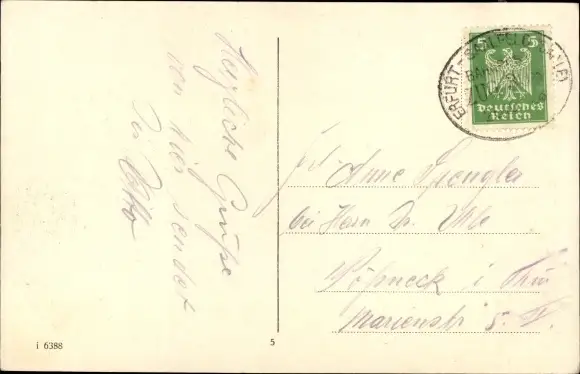 Herzliche Grüße
von hier sendet
Otto
Frl. Anne Spengler
bei Herrn Dr. Uhle
Pößneck i. Thür
Marienstr 5.
5 5
Deutsches
Reich
ERFURT - SAALFELD (SAALE)
i 6388
5